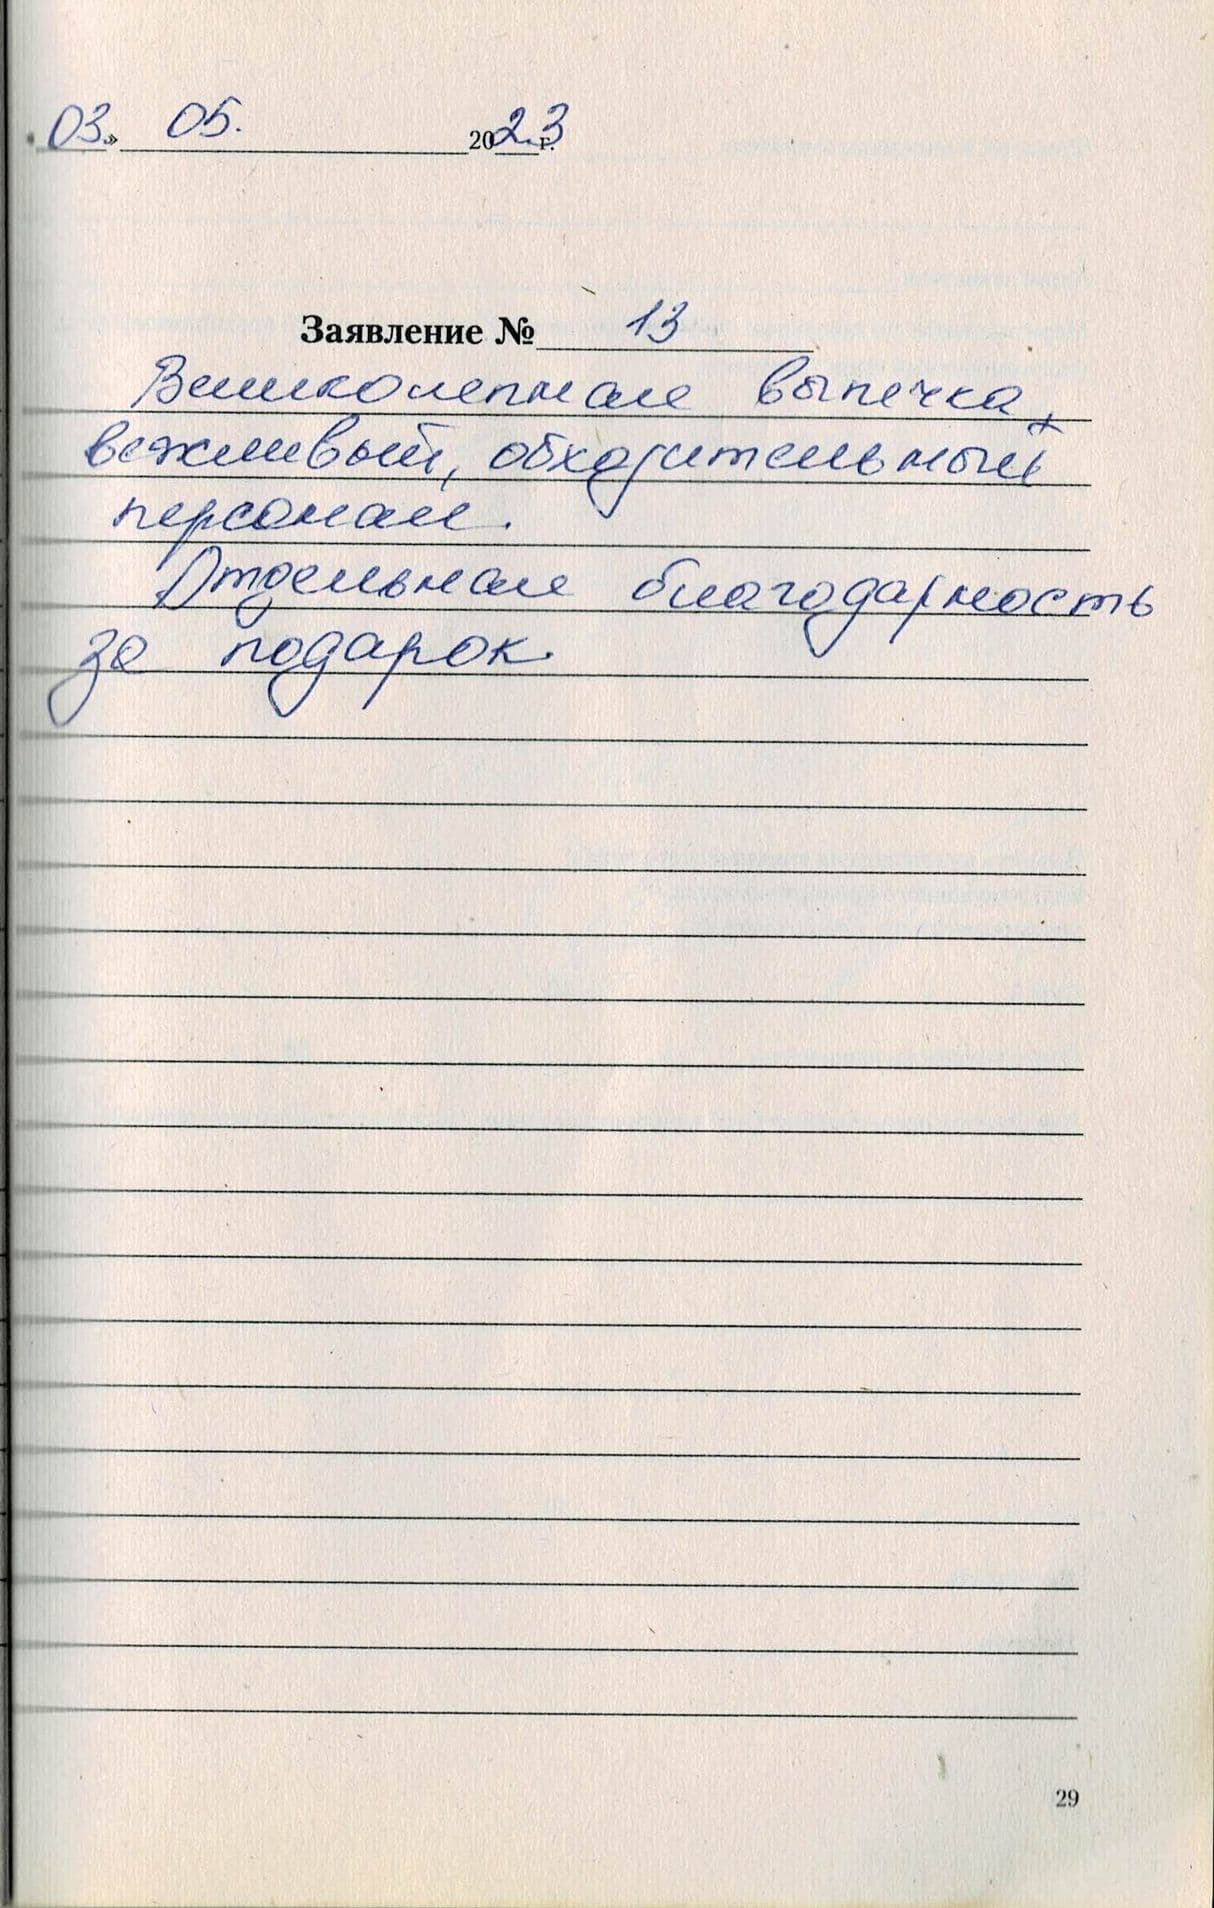 03» 05. 2023 г.
Заявление № 13
Великолепная выпечка,
вежливый, обходительный
персонал.
Отдельная благодарность
за подарок.
29